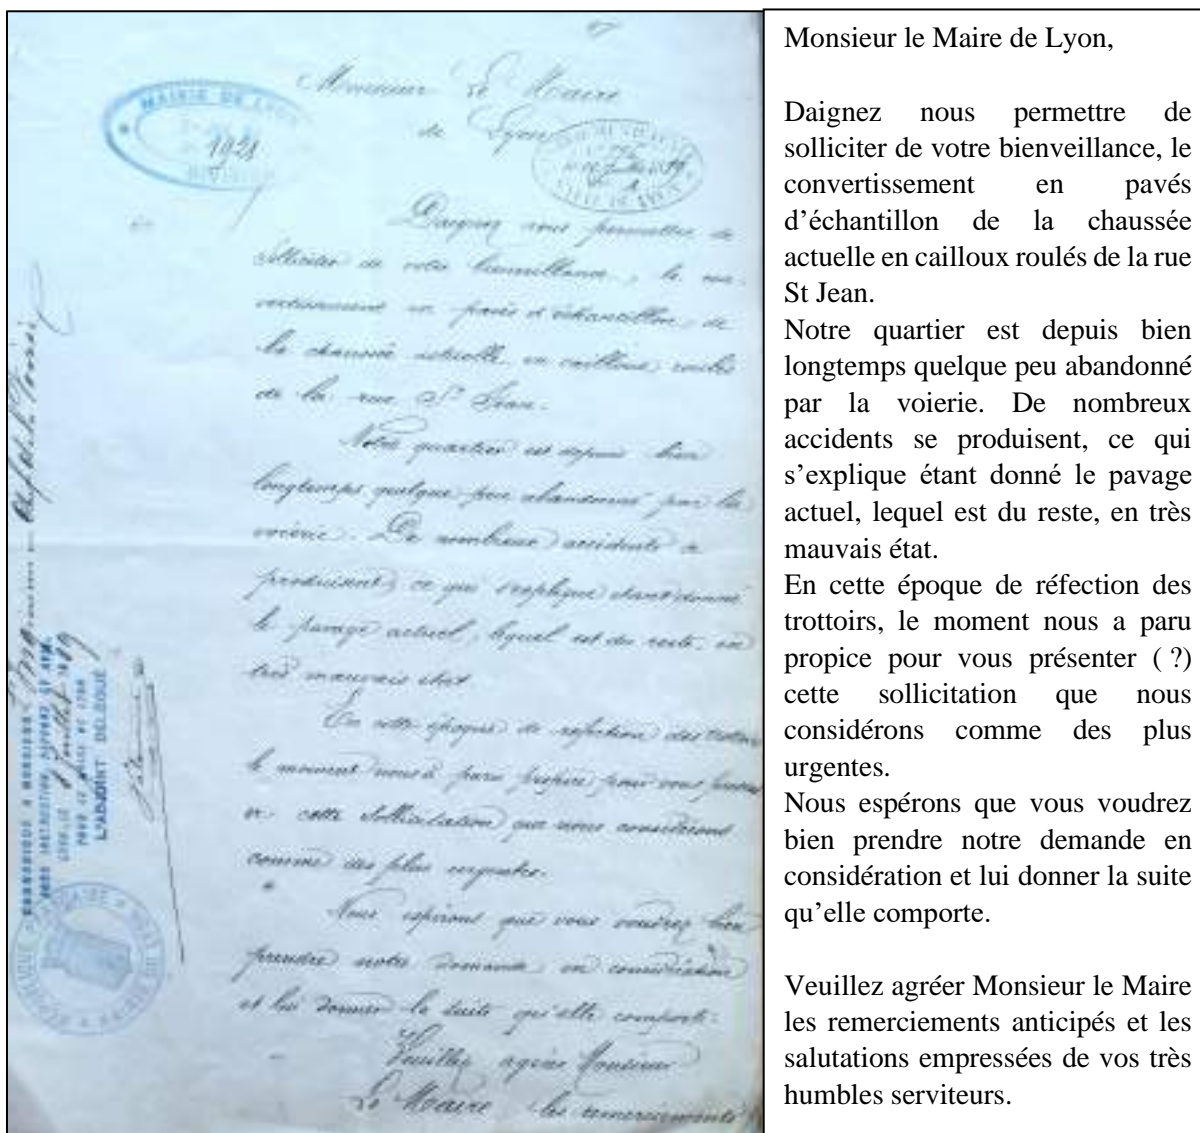 Monsieur Le Maire
de Lyon
MAIRIE DE LYON
1921
DIVISION
Daignez nous permettre de
solliciter de votre bienveillance, le con-
vertissement en pavés d'échantillon, de
la chaussée actuelle, en cailloux roulés
de la rue St Jean.
Notre quartier est depuis bien
longtemps quelque peu abandonné par la
voierie. De nombreux accidents se
produisent, ce qui s'explique étant donné
le pavage actuel, lequel est du reste, en
très mauvais état.
En cette époque de réfection des trottoirs
le moment nous a paru propice pour vous présen
er cette sollicitation que nous considérons
comme des plus urgentes.
Nous espérons que vous voudrez bien
prendre notre demande en considération
et lui donner la suite qu'elle comporte.
Veuillez agréer Monsieur
Le Maire les remerciements
L'ADJOINT DÉLÉGUÉ
Monsieur le Maire de Lyon,
Daignez nous permettre de
solliciter de votre bienveillance, le
convertissement en pavés
d'échantillon de la chaussée
actuelle en cailloux roulés de la rue
St Jean.
Notre quartier est depuis bien
longtemps quelque peu abandonné
par la voierie. De nombreux
accidents se produisent, ce qui
s'explique étant donné le pavage
actuel, lequel est du reste, en très
mauvais état.
En cette époque de réfection des
trottoirs, le moment nous a paru
propice pour vous présenter ( ?)
cette sollicitation que nous
considérons comme des plus
urgentes.
Nous espérons que vous voudrez
bien prendre notre demande en
considération et lui donner la suite
qu'elle comporte.
Veuillez agréer Monsieur le Maire
les remerciements anticipés et les
salutations empressées de vos très
humbles serviteurs.